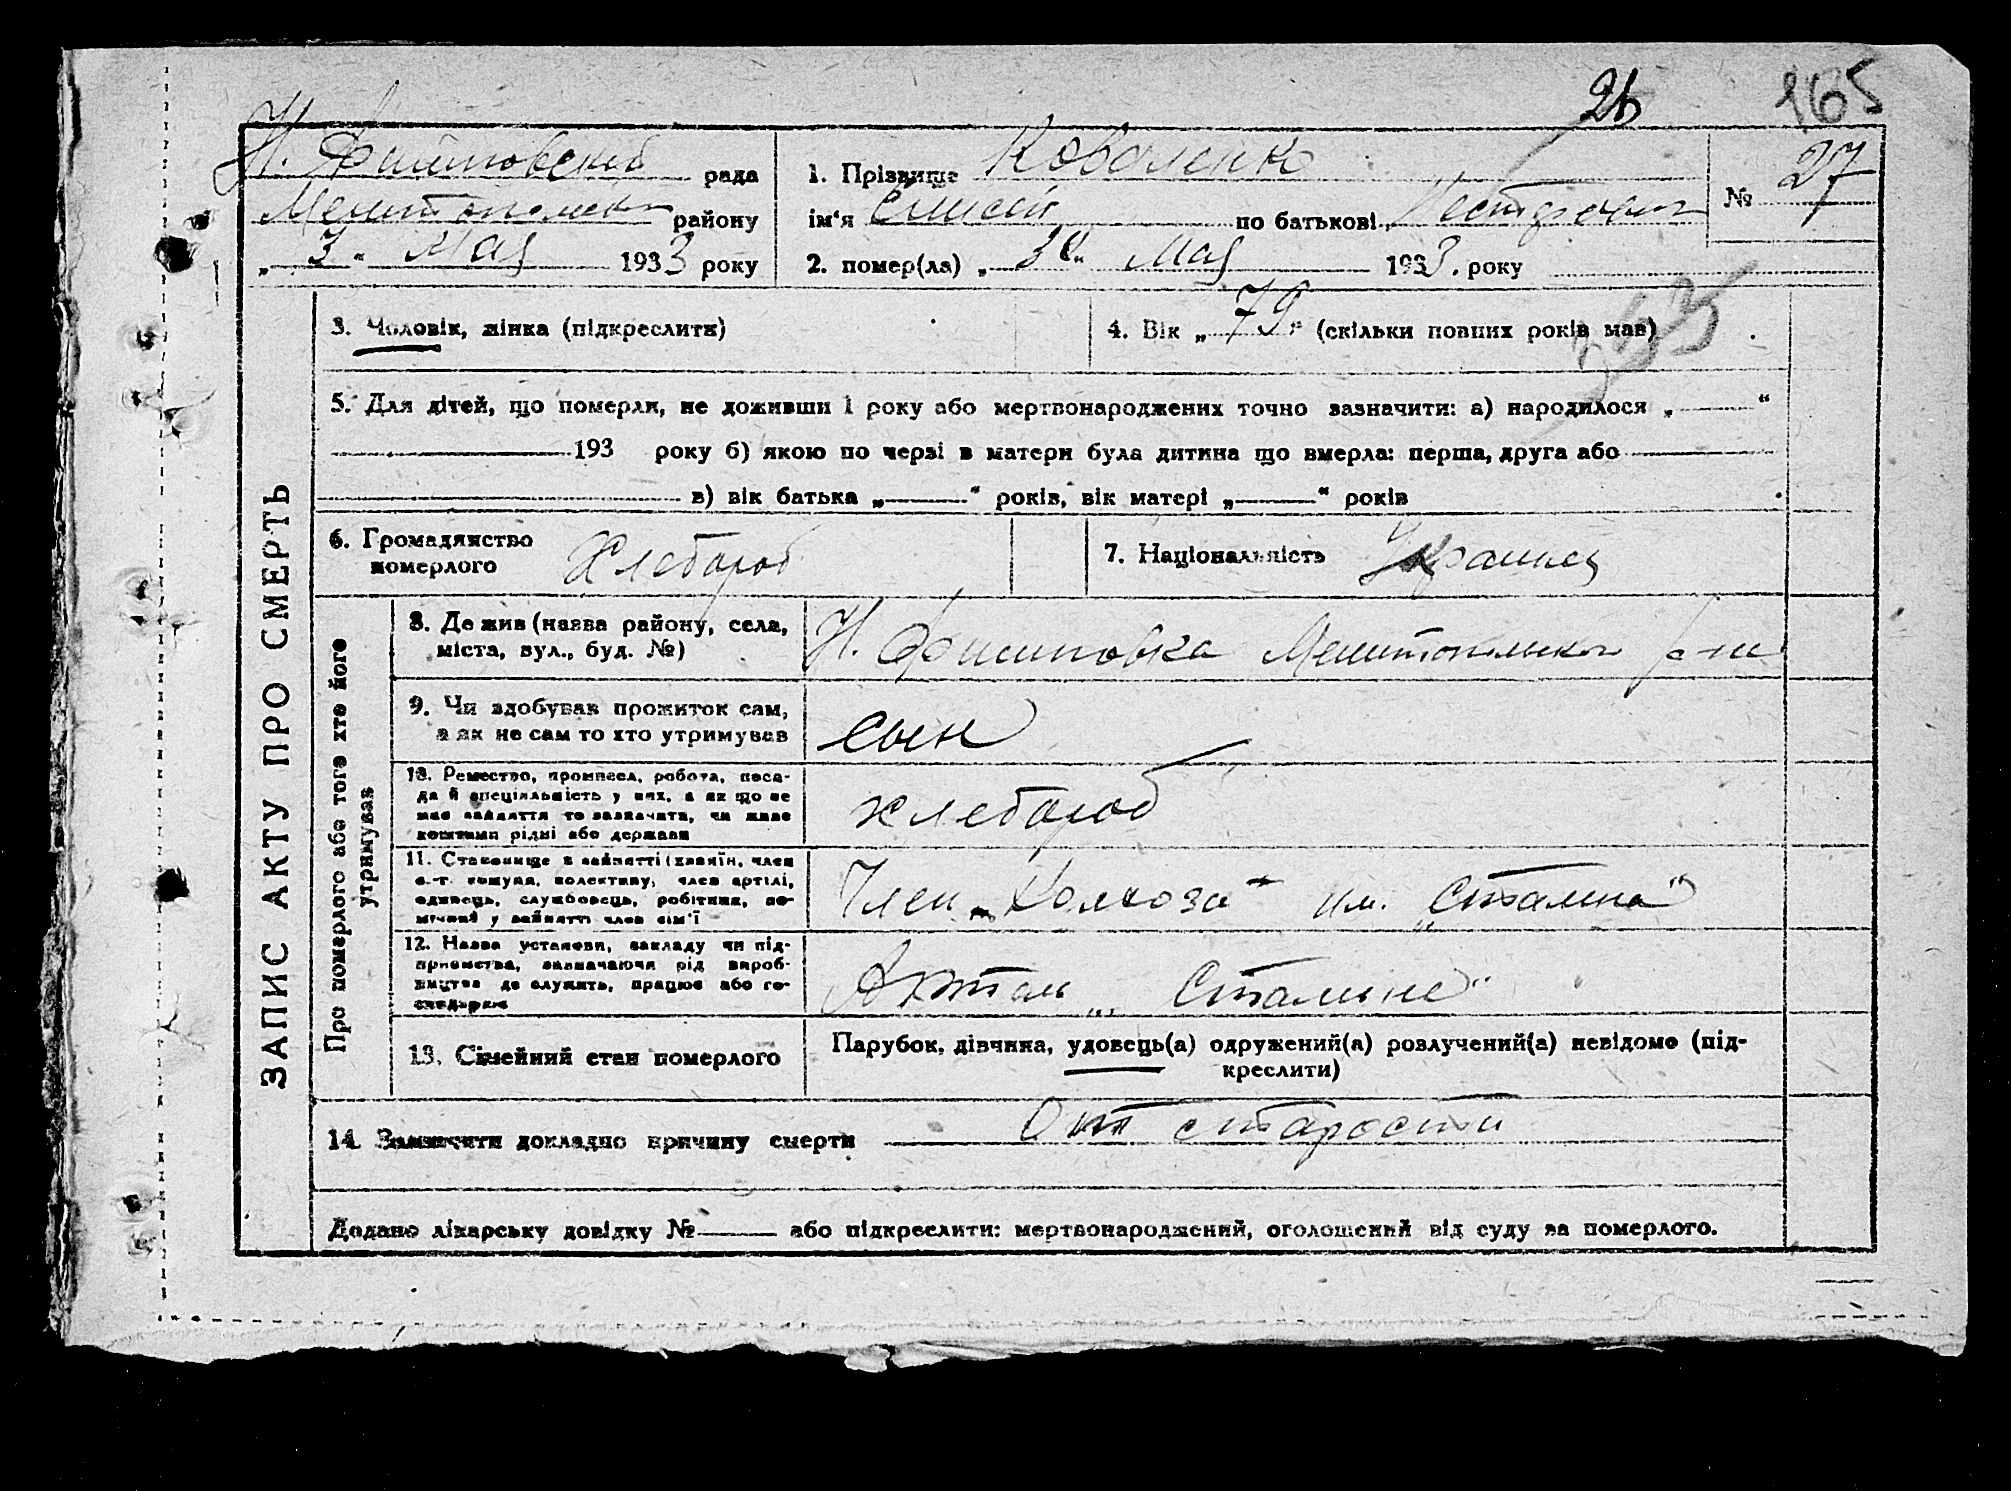 26 165
Н. Филиповский рада
Мелитопольск району
„ 3 “ Мая 1933 року
1. Прізвище Коваленко
ім‘я Елисей по батькові Нестерович
2. помер(ла) „ 3 “ Мая 1933. року
№ 27
3. Чоловік, жінка (підкреслити)
4. Вік „ 79 “ (скільки повних років мав)
5. Для дітей, що померли, не доживши 1 року або мертвонароджених точно зазначити: а) народилося „ “
193 року б) якою по черзі в матери була дитина що вмерла: перша, друга або
в) вік батька „ “ років, вік матері „ “ років
6. Громадянство
померлого Хлебороб
7. Національність Украинец
ЗАПИС АКТУ ПРО СМЕРТЬ
Про померлого або того хто його
утримував
8. Де жив (назва району, села,
міста, вул., буд. №)
Н. Филиповка Мелитопольского р-на
9. Чи здобував прожиток сам,
а як не сам то хто утримував
сын
10. Ремество, промисел, робота, поса-
да й спеціяльність у них, а як що не
мав заняття то зазначити, чи жив
коштами рідні або держави
хлебороб
11. Становище в занятті (хазяїн, член
с.-г. комуни, колективу, член артілі,
одинець, службовець, робітник, по-
мічний у занятті член сім‘ї
Член „Колхоза“ им. „Сталина“
12. Назва установи, закладу чи під-
приємства, зазначаючи рід вироб-
ництва де служить, працює або го-
сподарює
Артель „Сталине“
13. Сімейний стан померлого
Парубок, дівчина, удовець(а) одружений(а) розлучений(а) невідомо (під-
креслити)
14. Зазначити докладно причину смерти От старости
Додано лікарську довідку № або підкреслити: мертвонароджений, оголошений від суду за померлого.